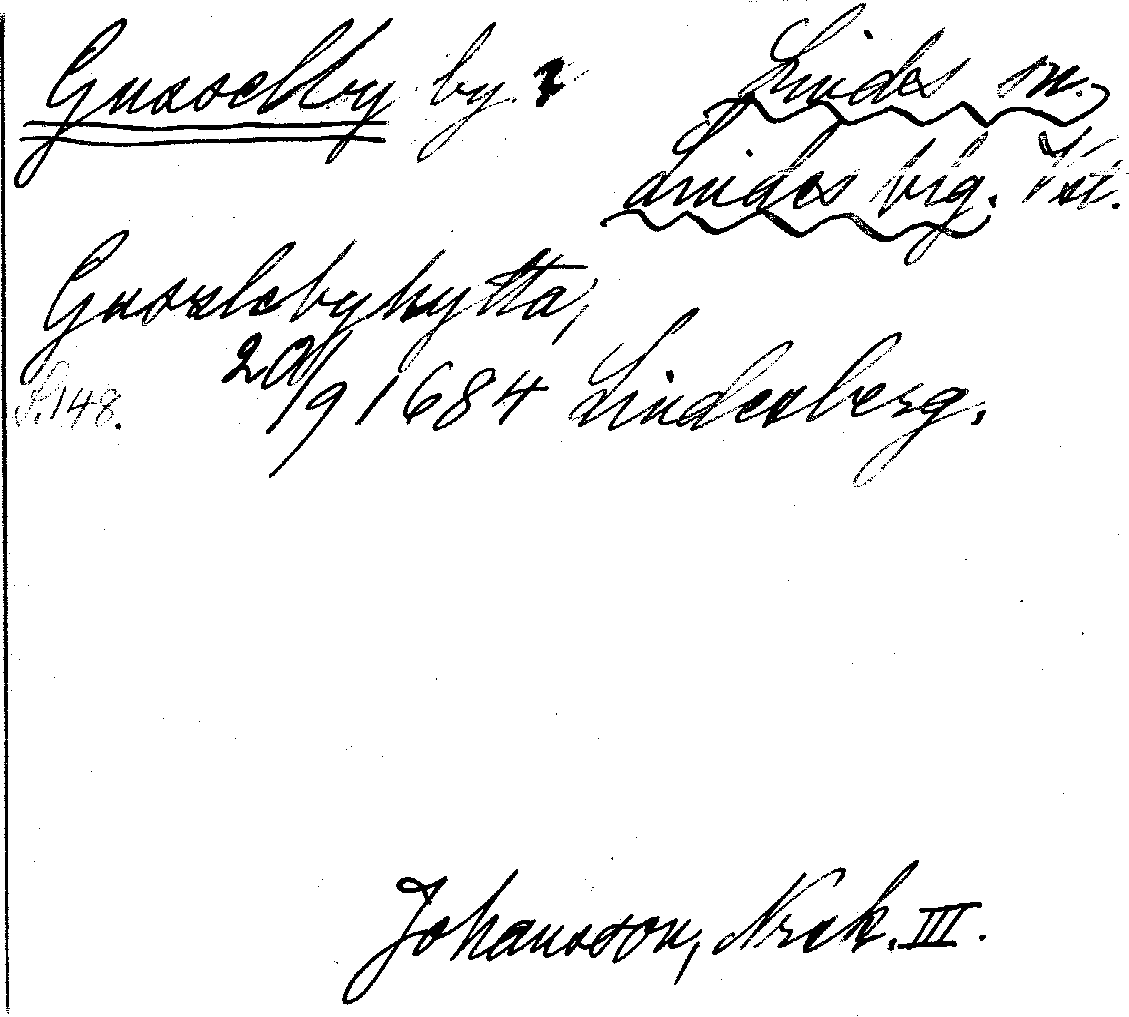 Gusselby by. Lindes sn.
Lindes brg. Vst.
Gusslebyhytta,
S. 148. 20/9 1684 Lindesberg.
Johansson, Norak. III.